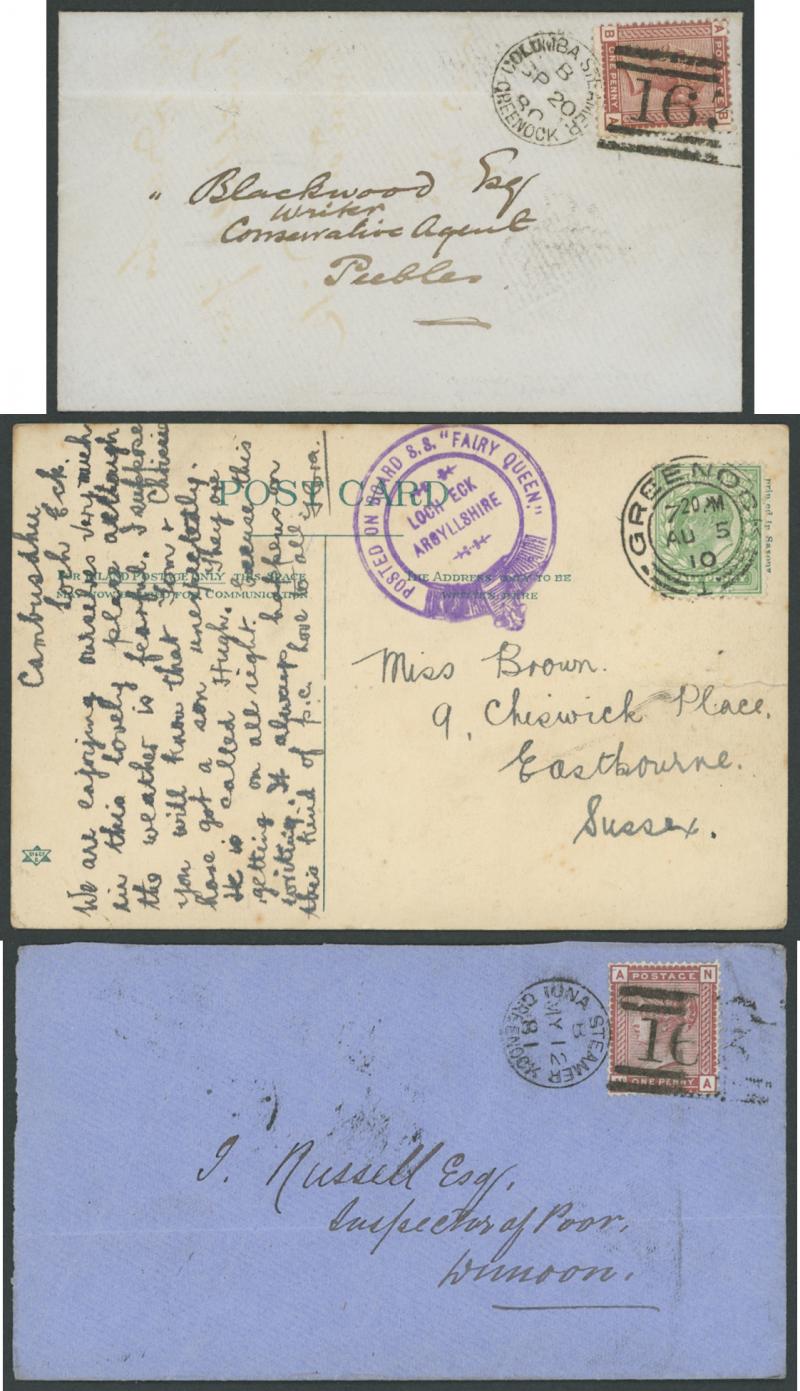 COLUMBA STEAMER
B
SP 20
80
GREENOCK
B POSTAGE A
A ONE PENNY B
16
" Blackwood Esq
Writer
Conservative Agent
Peebles
POST CARD
FOR INLAND POSTAGE ONLY THIS SPACE
MAY NOW BE USED FOR COMMUNICATION
THE ADDRESS ONLY TO BE
WRITTEN HERE
POSTED ON BOARD S.S. "FAIRY QUEEN."
ON
LOCH ECK
ARGYLLSHIRE
GREENOCK
7 20 PM
AU 5
10
1
Printed in Saxony
Cambusdhu
Loch Eck.
We are enjoying ourselves very much
in this lovely place although
the weather is fearful. I suppose
you will know that Tom &
have got a son unexpectedly.
He is called Hugh. They are
getting on all right. excuse this
writing. It always happens on
this kind of p.c. Love to all
Miss Brown.
9, Chiswick Place,
Eastbourne.
Sussex.
IONA STEAMER
B
MY 12
81
GREENOCK
A POSTAGE N
N ONE PENNY A
16
J. Russell Esq,
Inspector of Poor,
Dunoon.